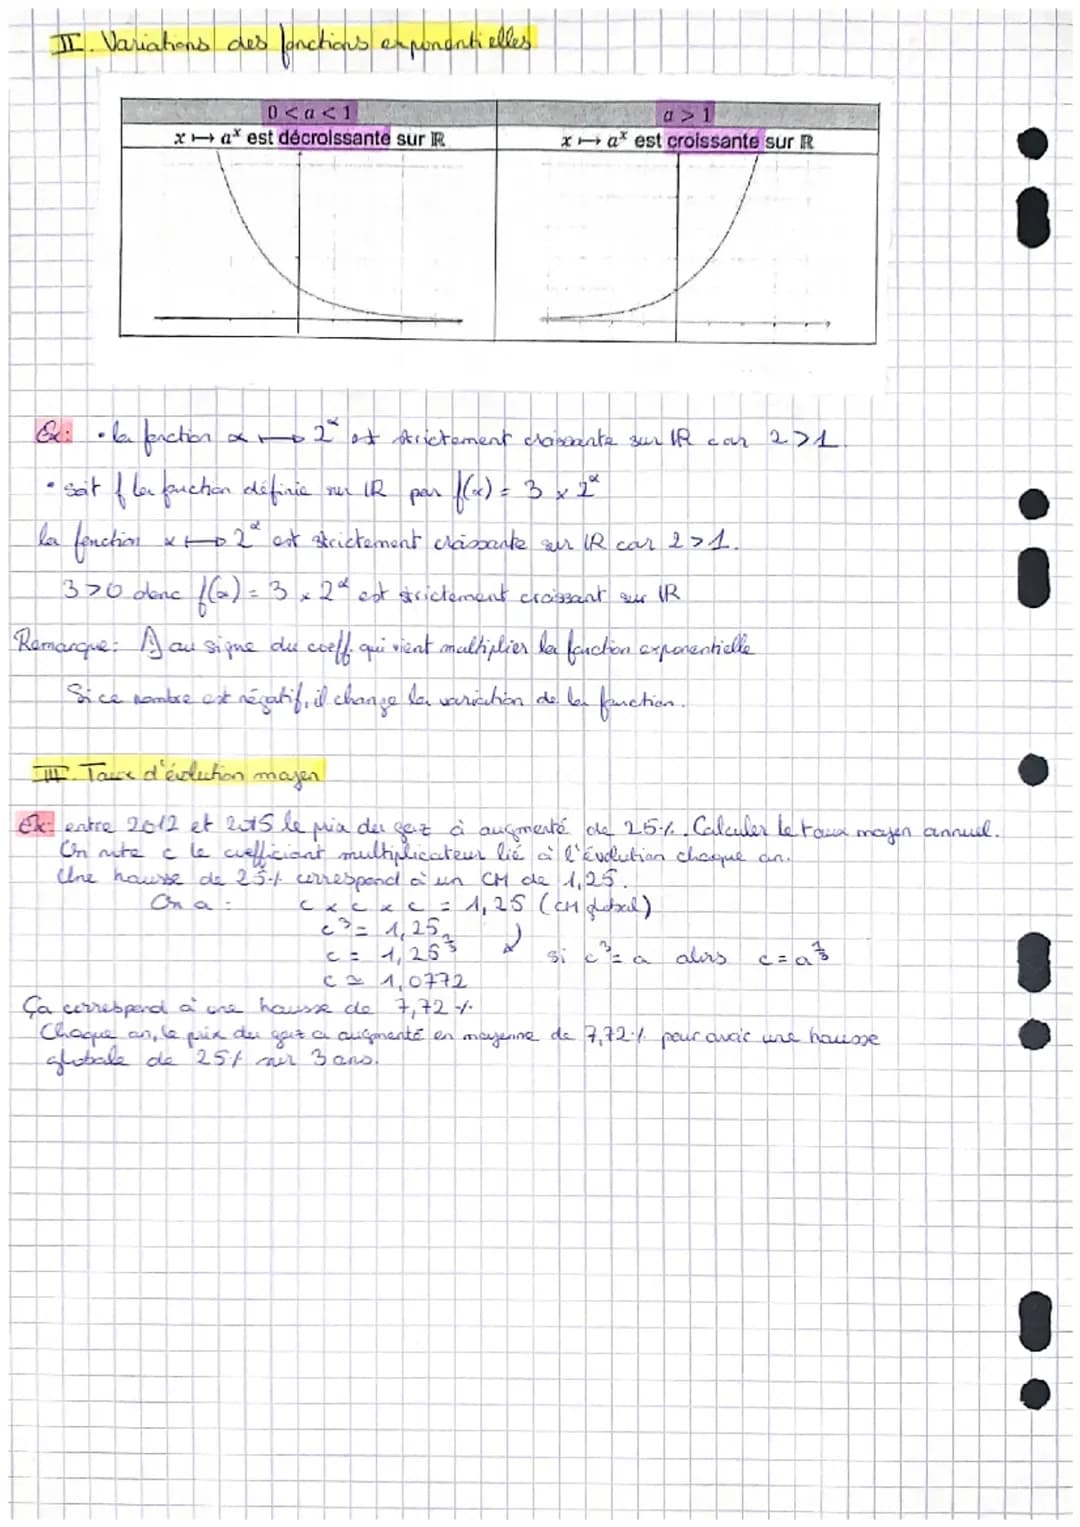 II. Variations des fonctions exponentielles
0 < a < 1
a > 1
x ↦ aˣ est décroissante sur ℝ
x ↦ aˣ est croissante sur ℝ
Ex: • la fonction x ↦ 2ˣ est strictement croissante sur ℝ car 2>1.
• soit f la fonction définie sur ℝ par f(x) = 3 × 2ˣ
la fonction x ↦ 2ˣ est strictement croissante sur ℝ car 2>1.
3>0 donc f(x) = 3 × 2ˣ est strictement croissant sur ℝ
Remarque: ⚠ au signe du coeff. qui vient multiplier la fonction exponentielle
Si ce nombre est négatif, il change la variation de la fonction.
III. Taux d'évolution moyen
Ex: entre 2012 et 2015 le prix du gaz à augmenté de 25%. Calculer le taux moyen annuel.
On note c le coefficient multiplicateur lié à l'évolution chaque an.
Une hausse de 25% correspond à un CM de 1,25.
On a : c × c × c = 1,25 (CM global)
c³ = 1,25
c = 1,25^⅓ si c³ = a alors c = a^⅓
c ≃ 1,0772
Ça correspond à une hausse de 7,72%.
Chaque an, le prix du gaz a augmenté en moyenne de 7,72% pour avoir une hausse
globale de 25% sur 3 ans.